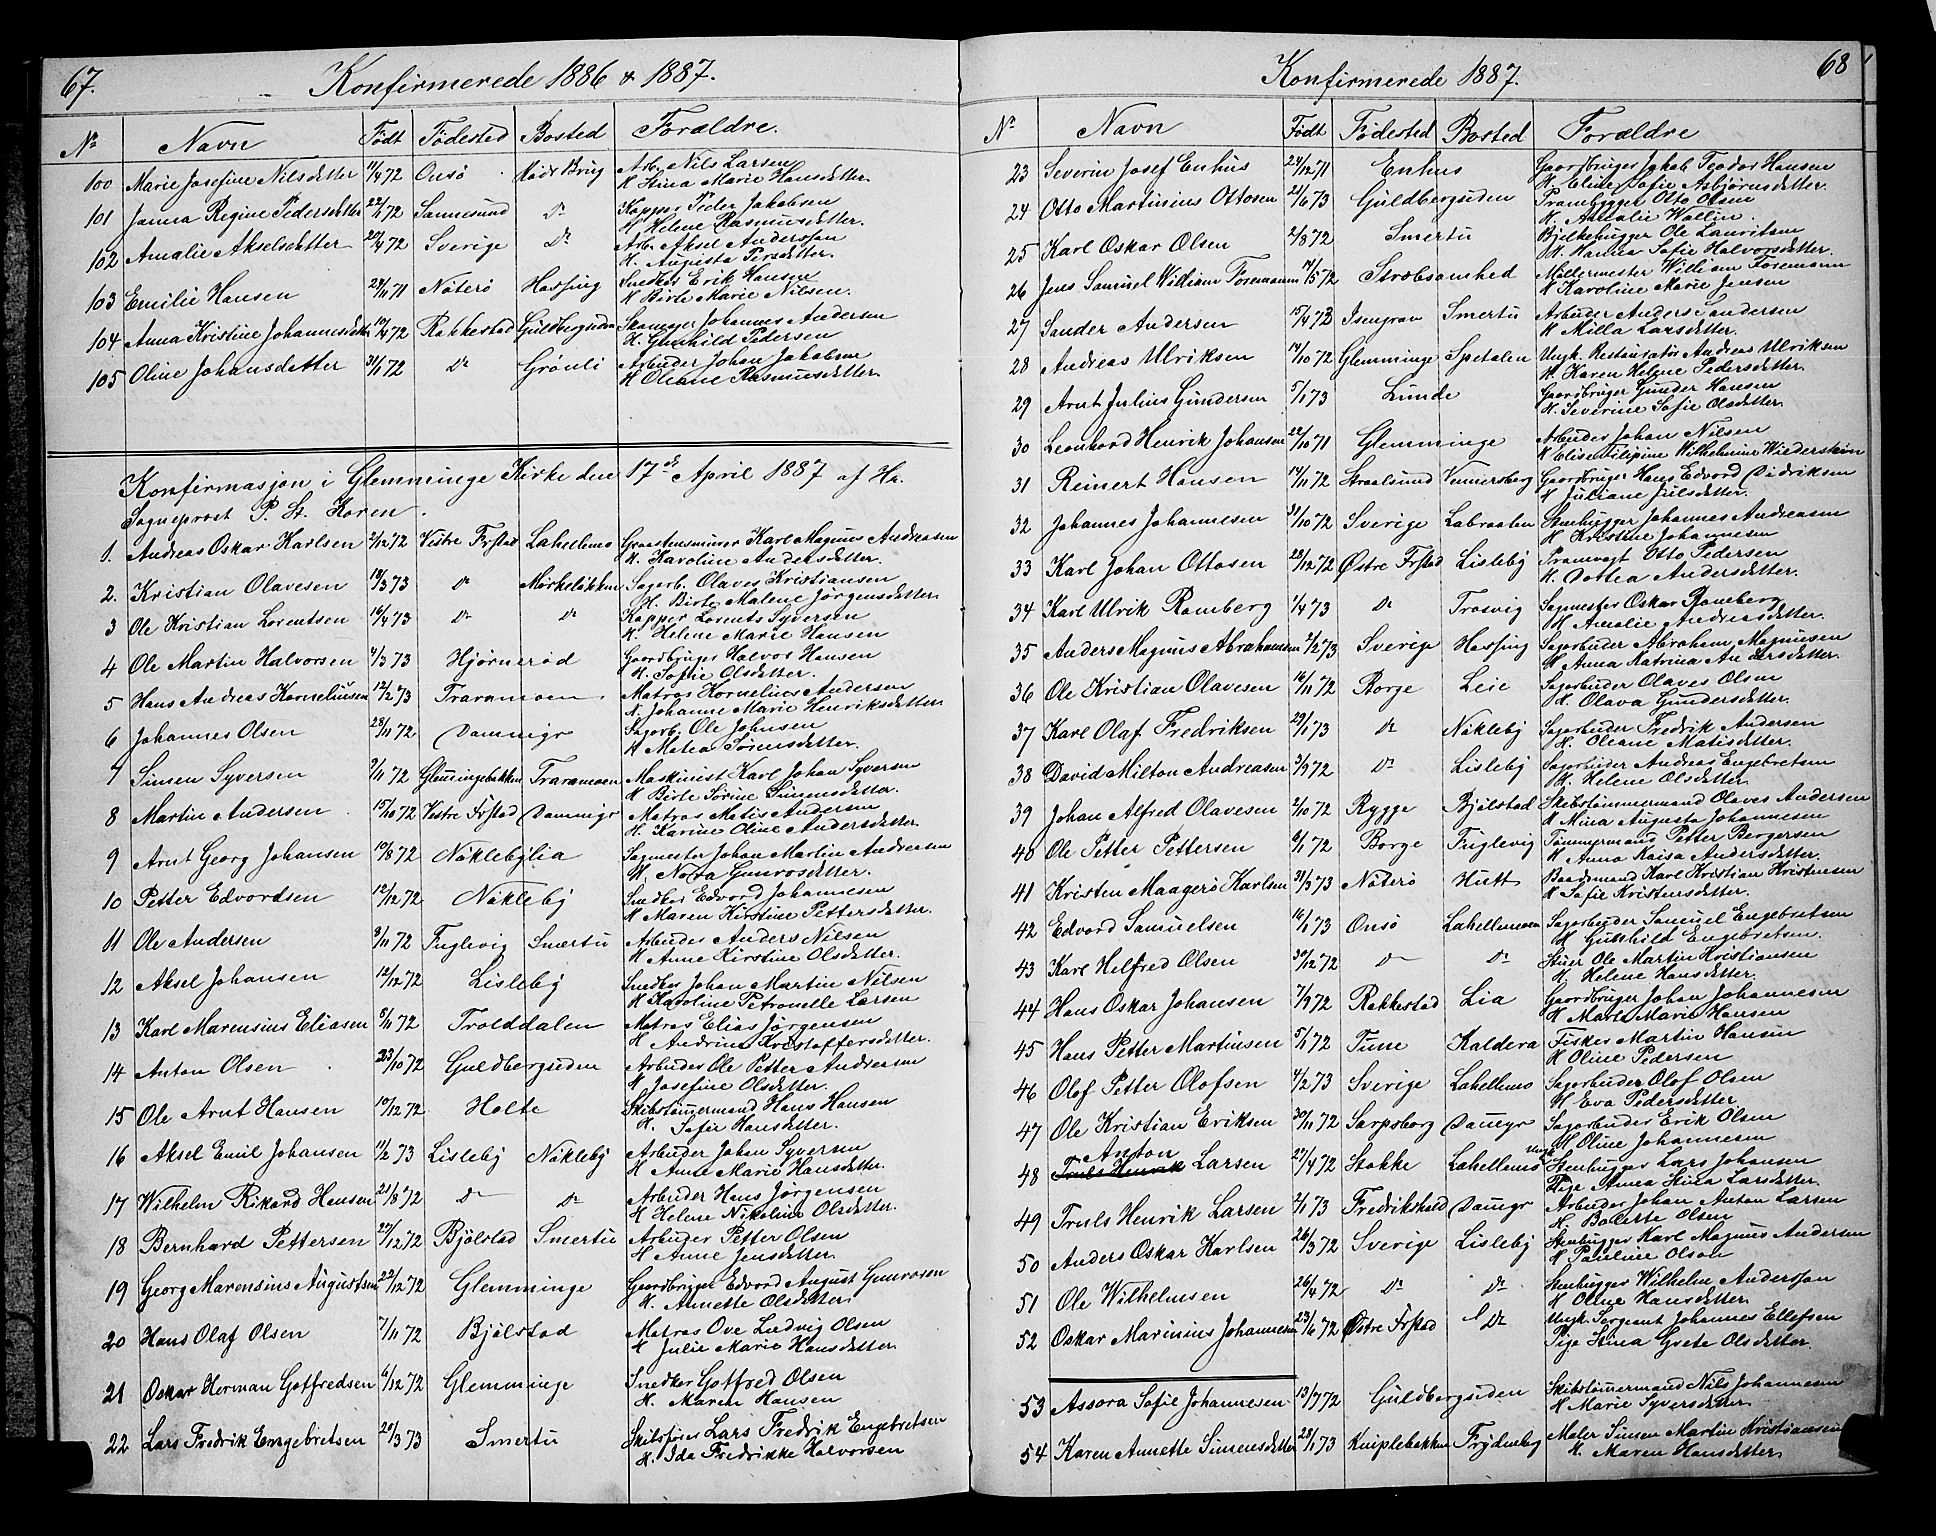 67.
Konfirmerede 1886 & 1887.
No Navn Født Fødested Bosted Forældre.
100 Marie Josefine Nilsdetter 11/4 72 Onsø Røds Brug Arb. Nils Larsen
H. Stina Marie Hansdetter.
101 Janna Regine Pedersdetter 22/1 72 Sannesund Do Kapper Peder Jakobsen
H Helene Rasmusdetter.
102 Amalie Akselsdetter 20/4 72 Sverige Do Arb. Aksel Andersson
H. Augusta Persdetter.
103 Emilie Hansen 29/11 71 Nøterø Hassing Snedker Erik Hansen
H Birte Marie Nilsen.
104 Anna Kristine Johannesdetter 10/4 72 Rakkestad Guldbergsuden Skomager Johannes Andersen
H. Gunhild Pedersen
105 Oline Johansdetter 31/1 72 Do Grønli Arbeider Johan Jakobsen
H Oleane Rasmusdetter.
Konfirmasjon i Glemminge Kirke den 17de April 1887 af Hr.
Sogneprost P. St. Koren.
1. Andreas Oskar Karlsen 2/12 72 Vestre Frstad Lahellemo Graastensminer Karl Magnus Andreasen
H. Karoline Andersdetter.
2. Kristian Olavesen 18/3 73 Do Mørkeløkken Sagarb. Olaves Kristiansen
H. Birte Malene Jørgensdetter
3 Ole Kristian Lorentsen 16/4 73 Do Do Kapper Lorents Syversen
H. Helene Marie Hansen
4 Ole Martin Halvorsen 4/3 73 Hjørnerød Gaardbruger Halvor Hansen
H. Sofie Olsdetter.
5 Hans Andreas Korneliusen 12/2 73 Traramoen. Matros Kornelius Andersen
H. Johanne Marie Henriksdetter
6 Johannes Olsen 28/11 72 Dammigr Sagarb. Ole Johnsen
H Matea Sørensdetter.
7 Simen Syversen 9/11 72 Glemmingebakken Traramoen Maskinist Karl Johan Syversen
H Birte Sørine Simensdetter.
8 Martin Andersen 15/10 72 Vestre Frstad Dammigr Matros Matis Andersen
H. Karine Oline Andersdetter.
9 Arnt Georg Johansen 10/8 72 Nøklebylia Sagmester Johan Martin Andersen
H. Nora Gunrosdetter.
10 Petter Edvardsen 12/12 72 Nøkleby Snedker Edvard Johannesen
H Maren Kirstine Pettersdetter.
11 Ole Andersen 8/11 72 Fuglevig Smertu Arbeider Anders Nilsen
H Anne Kirstine Olsdetter.
12 Aksel Johansen 12/12 72 Lisleby Snedker Johan Martin Nilsen
H Karoline Petronelle Larsen
13 Karl Marensius Eliasen 8/11 72 Trolddalen Matros Elias Jørgensen
H Andrine Kristoffersdetter.
14 Anton Olsen 23/10 72 Guldbergsuden Arbeider Ole Petter Andersen
H Josefine Olsdetter.
15 Ole Arnt Hansen 10/12 72 Holte Skibstømmermand Hans Hansen
H. Sofie Hansdetter.
16 Aksel Emil Johansen 11/2 73 Lisleby Nøkleby Arbeider Johan Syversen
H Anne Marie Hansdetter.
17 Wilhelm Rikard Hansen 21/8 72 Do Do Arbeider Hans Jørgensen
H Helene Nikoline Olsdetter.
18 Bernhard Pettersen 27/12 72 Bjølstad Smertu Arbeider Petter Olsen
H Anne Jensdetter.
19 Georg Marensius Augustsen 22/12 72 Glemminge Gaardbruger Edvard August Gunrosen
H. Annette Olsdetter.
20 Hans Olaf Olsen 7/11 72 Bjølstad Matros Ove Ludvig Olsen
H Julie Marie Hansdetter
21 Oskar Herman Gotfredsen 6/12 72 Glemminge Snedker Gotfred Olsen
H. Maren Hansen
22 Lars Fredrik Engebretsen 20/3 73 Smertu Skibsfører Lars Fredrik Engebretsen
H. Ida Fredrikke Halvorsen
68
Konfirmerede 1887.
No Navn Født Fødested Bosted Forældre
23 Severin Josef Enhus 24/12 71 Enhus Gaardbruger Jakob Teodor Hansen
H. Eline Sofie Asbjørnsdetter.
24 Otto Martinius Ottosen 21/6 73 Guldbergsuden Prambygger Otto Olsen
H. Amalie Wallin.
25 Karl Oskar Olsen 2/8 72 Smertu Bjelkehugger Ole Lauritsen
H. Hanna Sofie Halvorsdetter.
26 Jens Samuel William Forsemann 17/5 72 Stræbsomhed Møllermester William Forsemann
H Karoline Marie Jensen
27 Sander Andersen 15/4 72 Isengran Smertu Arbeider Anders Sandersen
H Milla Larsdetter.
28 Andreas Ulriksen 14/10 72 Glemminge Spetalen Ungk. Restauratør Andreas Ulriksen
H. Karen Helene Pedersdetter.
29 Arnt Julius Gundersen 5/1 73 Lunde Gaardbruger Gunder Hansen
H. Severine Sofie Olsdetter.
30 Leonhard Henrik Johansen 22/10 71 Glemminge Arbeider Johan Nilsen
H Elise Filipine Wilhelmine Wiederstrøm
31 Reinert Hansen 14/11 72 Straalsund Vennersborg Gaardbruger Hans Edvard Didriksen
H Juliane Julsdetter.
32 Johannes Johannesen 31/10 72 Sverige Labraaten Stenhugger Johannes Andreasen
H Kristine Johannesen
33 Karl Johan Ottosen 28/12 72 Østre Frstad Lisleby Pramvagt Otto Pedersen
H. Dottea Andersdetter.
34 Karl Ulrik Ramberg 1/4 73 Do Trosvig Sagmester Oskar Ramberg
H Amalie Andreasdetter.
35 Anders Magnus Abrahamsen 2/2 73 Sverige Hassing Sagarbeider Abraham Magnusen
H Anna Katrina Andersdetter.
36 Ole Kristian Olavesen 16/11 72 Borge Leie Sagarbeider Olaves Olsen
H. Olava Gundersdetter.
37 Karl Olaf Fredriksen 29/1 73 Do Nøkleby Sagarbeider Fredrik Andersen
H. Oleane Matisdetter.
38 David Milton Andreasen 3/9 72 Do Lisleby Sagarbeider Andreas Engebretsen
H. Helene Olsdetter.
39 Johan Alfred Olavesen 2/10 72 Rygge Bjølstad Skibstømmermand Olaves Andersen
H Mina Augusta Johannesen
40 Ole Petter Pettersen 6/1 72 Borge Fuglevig Tømmermand Petter Bergersen
H Anna Kaisa Andersdetter.
41 Kristen Maagerø Karlsen 31/3 73 Nøterø Hutt Baadsmand Karl Kristian Kristensen
H Sofie Kristensdetter.
42 Edvard Samuelsen 16/1 73 Onsø Lahellemoen Sagarbeider Samuel Engebretsen
H Gunhild Engebretsen.
43 Karl Helfred Olsen 30/12 72 Do Do Stuer Ole Martin Kristiansen
H. Helene Hansdetter.
44 Hans Oskar Johansen 7/9 72 Rakkestad Lia Gaardbruger Johan Johannesen
H Marte Marie Hansen
45 Hans Petter Martinsen 5/1 72 Tune Kaldera Fisker Martin Hansen
H Oline Pedersen
46 Olof Petter Olofsen 4/2 73 Sverige Lahellemo Sagarbeider Olof Olsen
H Eva Pedersdetter
47 Ole Kristian Eriksen 30/11 72 Sarpsborg Damgr Sagarbeider Erik Olsen
H Oline Johannesen
48 Anton Truls Henrik Larsen 27/4 72 Stokke Lahellemo Ungk. Stenhugger Lars Johansen
Pige Anna Stina Larsdetter.
49 Truls Henrik Larsen 2/1 73 Fredrikshald Damgr Arbeider Johan Anton Larsen
H. Bolerte Olsen
50 Anders Oskar Karlsen 26/3 72 Sverige Lisleby Stenhugger Karl Magnus Andersen
H Pauline Olson
51 Ole Wilhelmsen 26/4 72 Do Do Stenhugger Wilhelm Andersson
H Oline Hansdetter
52 Oskar Marinius Johannesen 23/6 72 Østre Frstad Do Ungk. Sergeant Johannes Ellefsen
Pige Stina Grete Olsdetter.
53 Assora Sofie Johannesen 13/9 72 Guldbergsuden Skibstømmermand Nils Johannesen
H Marie Syversdetter
54 Karen Annette Simensdetter 28/1 73 Kniplebakken Frydenberg Maler Simen Martin Kristiansen
H. Maren Hansdetter